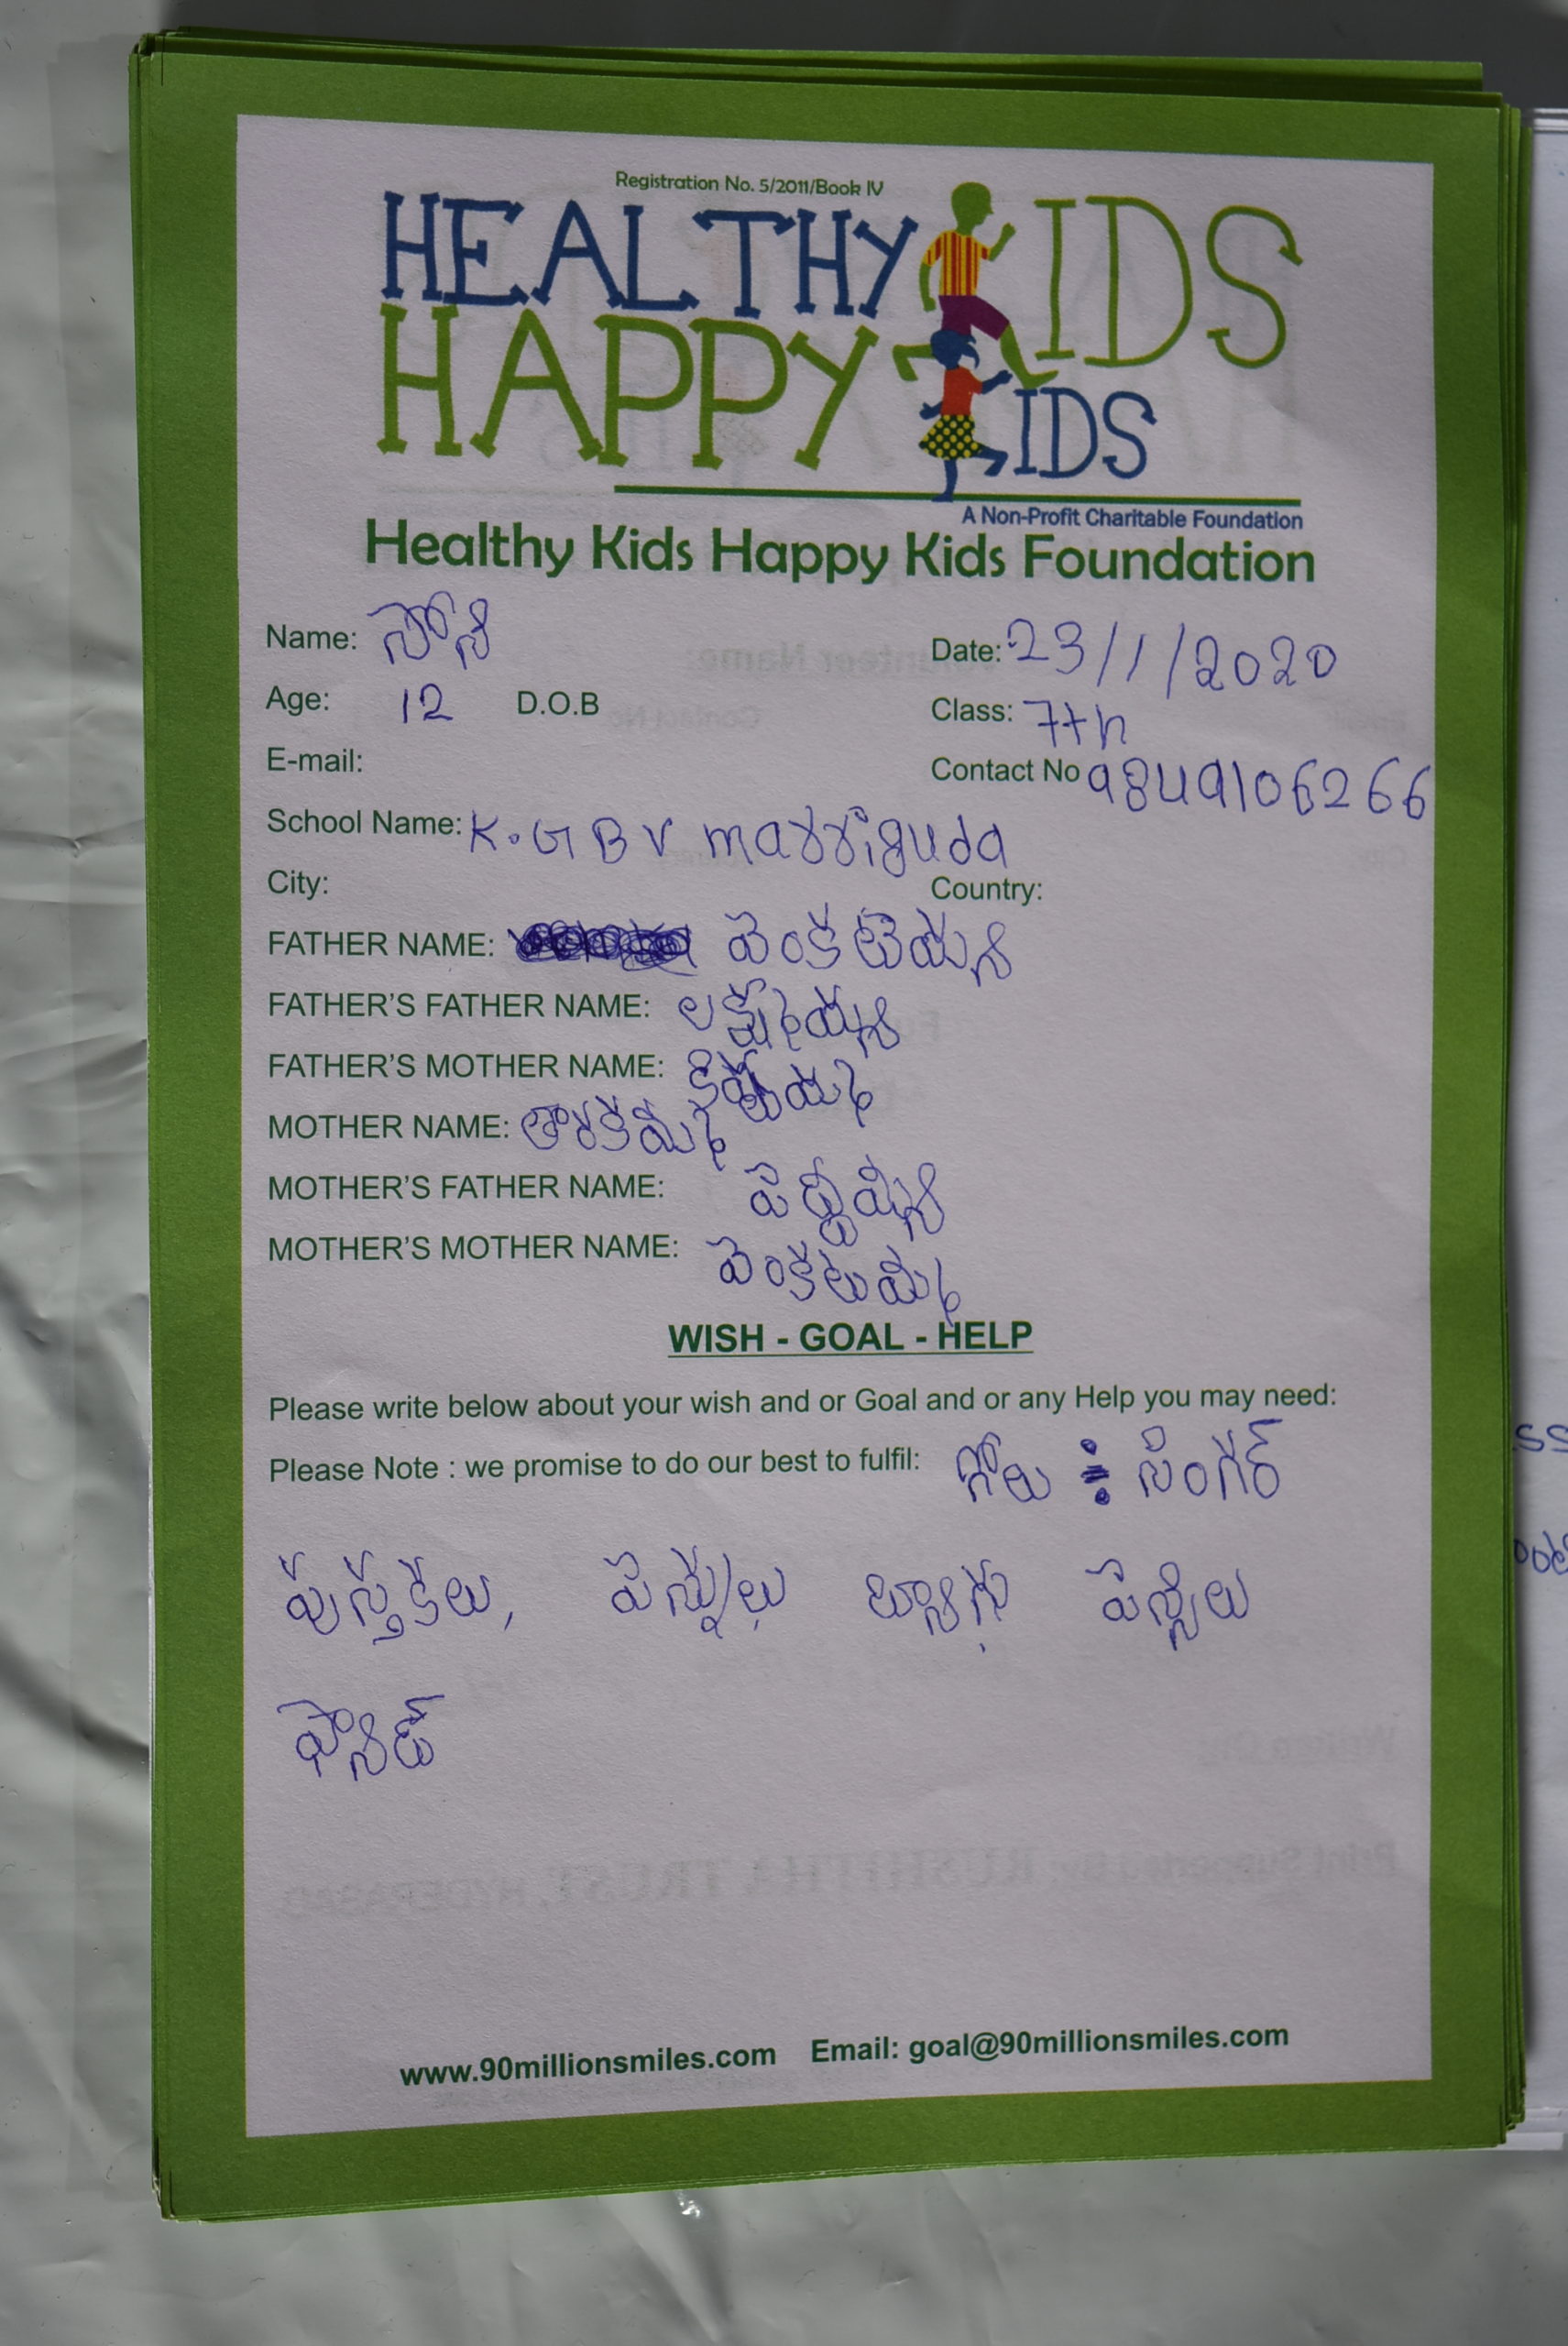 Registration No. 5/2011/Book IV
HEALTHY KIDS
HAPPY KIDS
A Non-Profit Charitable Foundation
Healthy Kids Happy Kids Foundation
Name: సోని Date: 23/1/2020
Age: 12 D.O.B Class: 7th
E-mail: Contact No 9849106266
School Name: K.GBV marriguda
City: Country:
FATHER NAME: వెంకటయ్య
FATHER'S FATHER NAME: లక్ష్మయ్య
FATHER'S MOTHER NAME:
MOTHER NAME: తారకమ్మ
MOTHER'S FATHER NAME: పెద్దయ్య
MOTHER'S MOTHER NAME: వెంకటమ్మ
WISH - GOAL - HELP
Please write below about your wish and or Goal and or any Help you may need:
Please Note : we promise to do our best to fulfil: గోలు ÷ సింగర్
పుస్తకలు, పెన్నులు బ్యాగు పెన్సిలు
ప్యాడ్
www.90millionsmiles.com Email: goal@90millionsmiles.com